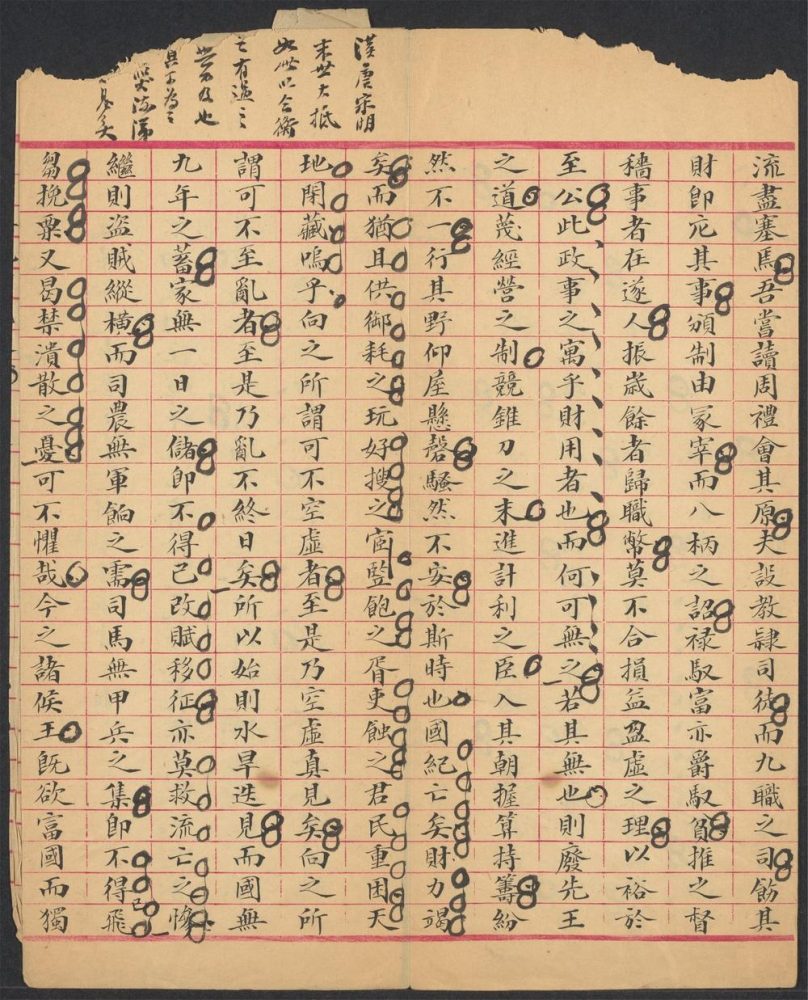 流盡塞焉吾嘗讀周禮會其原夫設教隸司徒而九職之司飭其
財即庀其事頒制由冢宰而八柄之詔祿馭富亦爵馭貧推之督
穡事者在遂人振歲餘者歸職幣莫不合損益盈虛之理以裕於
至公此政事之寓乎財用者也而何可無之若其無也則廢先王
之道茂經營之制競錐刀之末進計利之臣入其朝握算持籌紛
然不一行其野仰屋懸磬騷然不安於斯時也國紀亡矣財力竭
矣而猶且供御耗之玩好搜之宦監飽之胥吏蝕之君民重困天
地閑藏嗚乎向之所謂可不空虛者至是乃空虛真見矣向之所
謂可不至亂者至是乃亂不終日矣所以始則水旱迭見而國無
九年之蓄家無一日之儲即不得已改賦移征亦莫救流亡之慘
繼則盜賊縱橫而司農無軍餉之需司馬無甲兵之集即不得已飛
芻挽粟又曷禁潰散之憂可不懼哉今之諸侯王既欲富國而獨
漢唐宋明
末世大抵
如此以合術
亡有進之
當及也